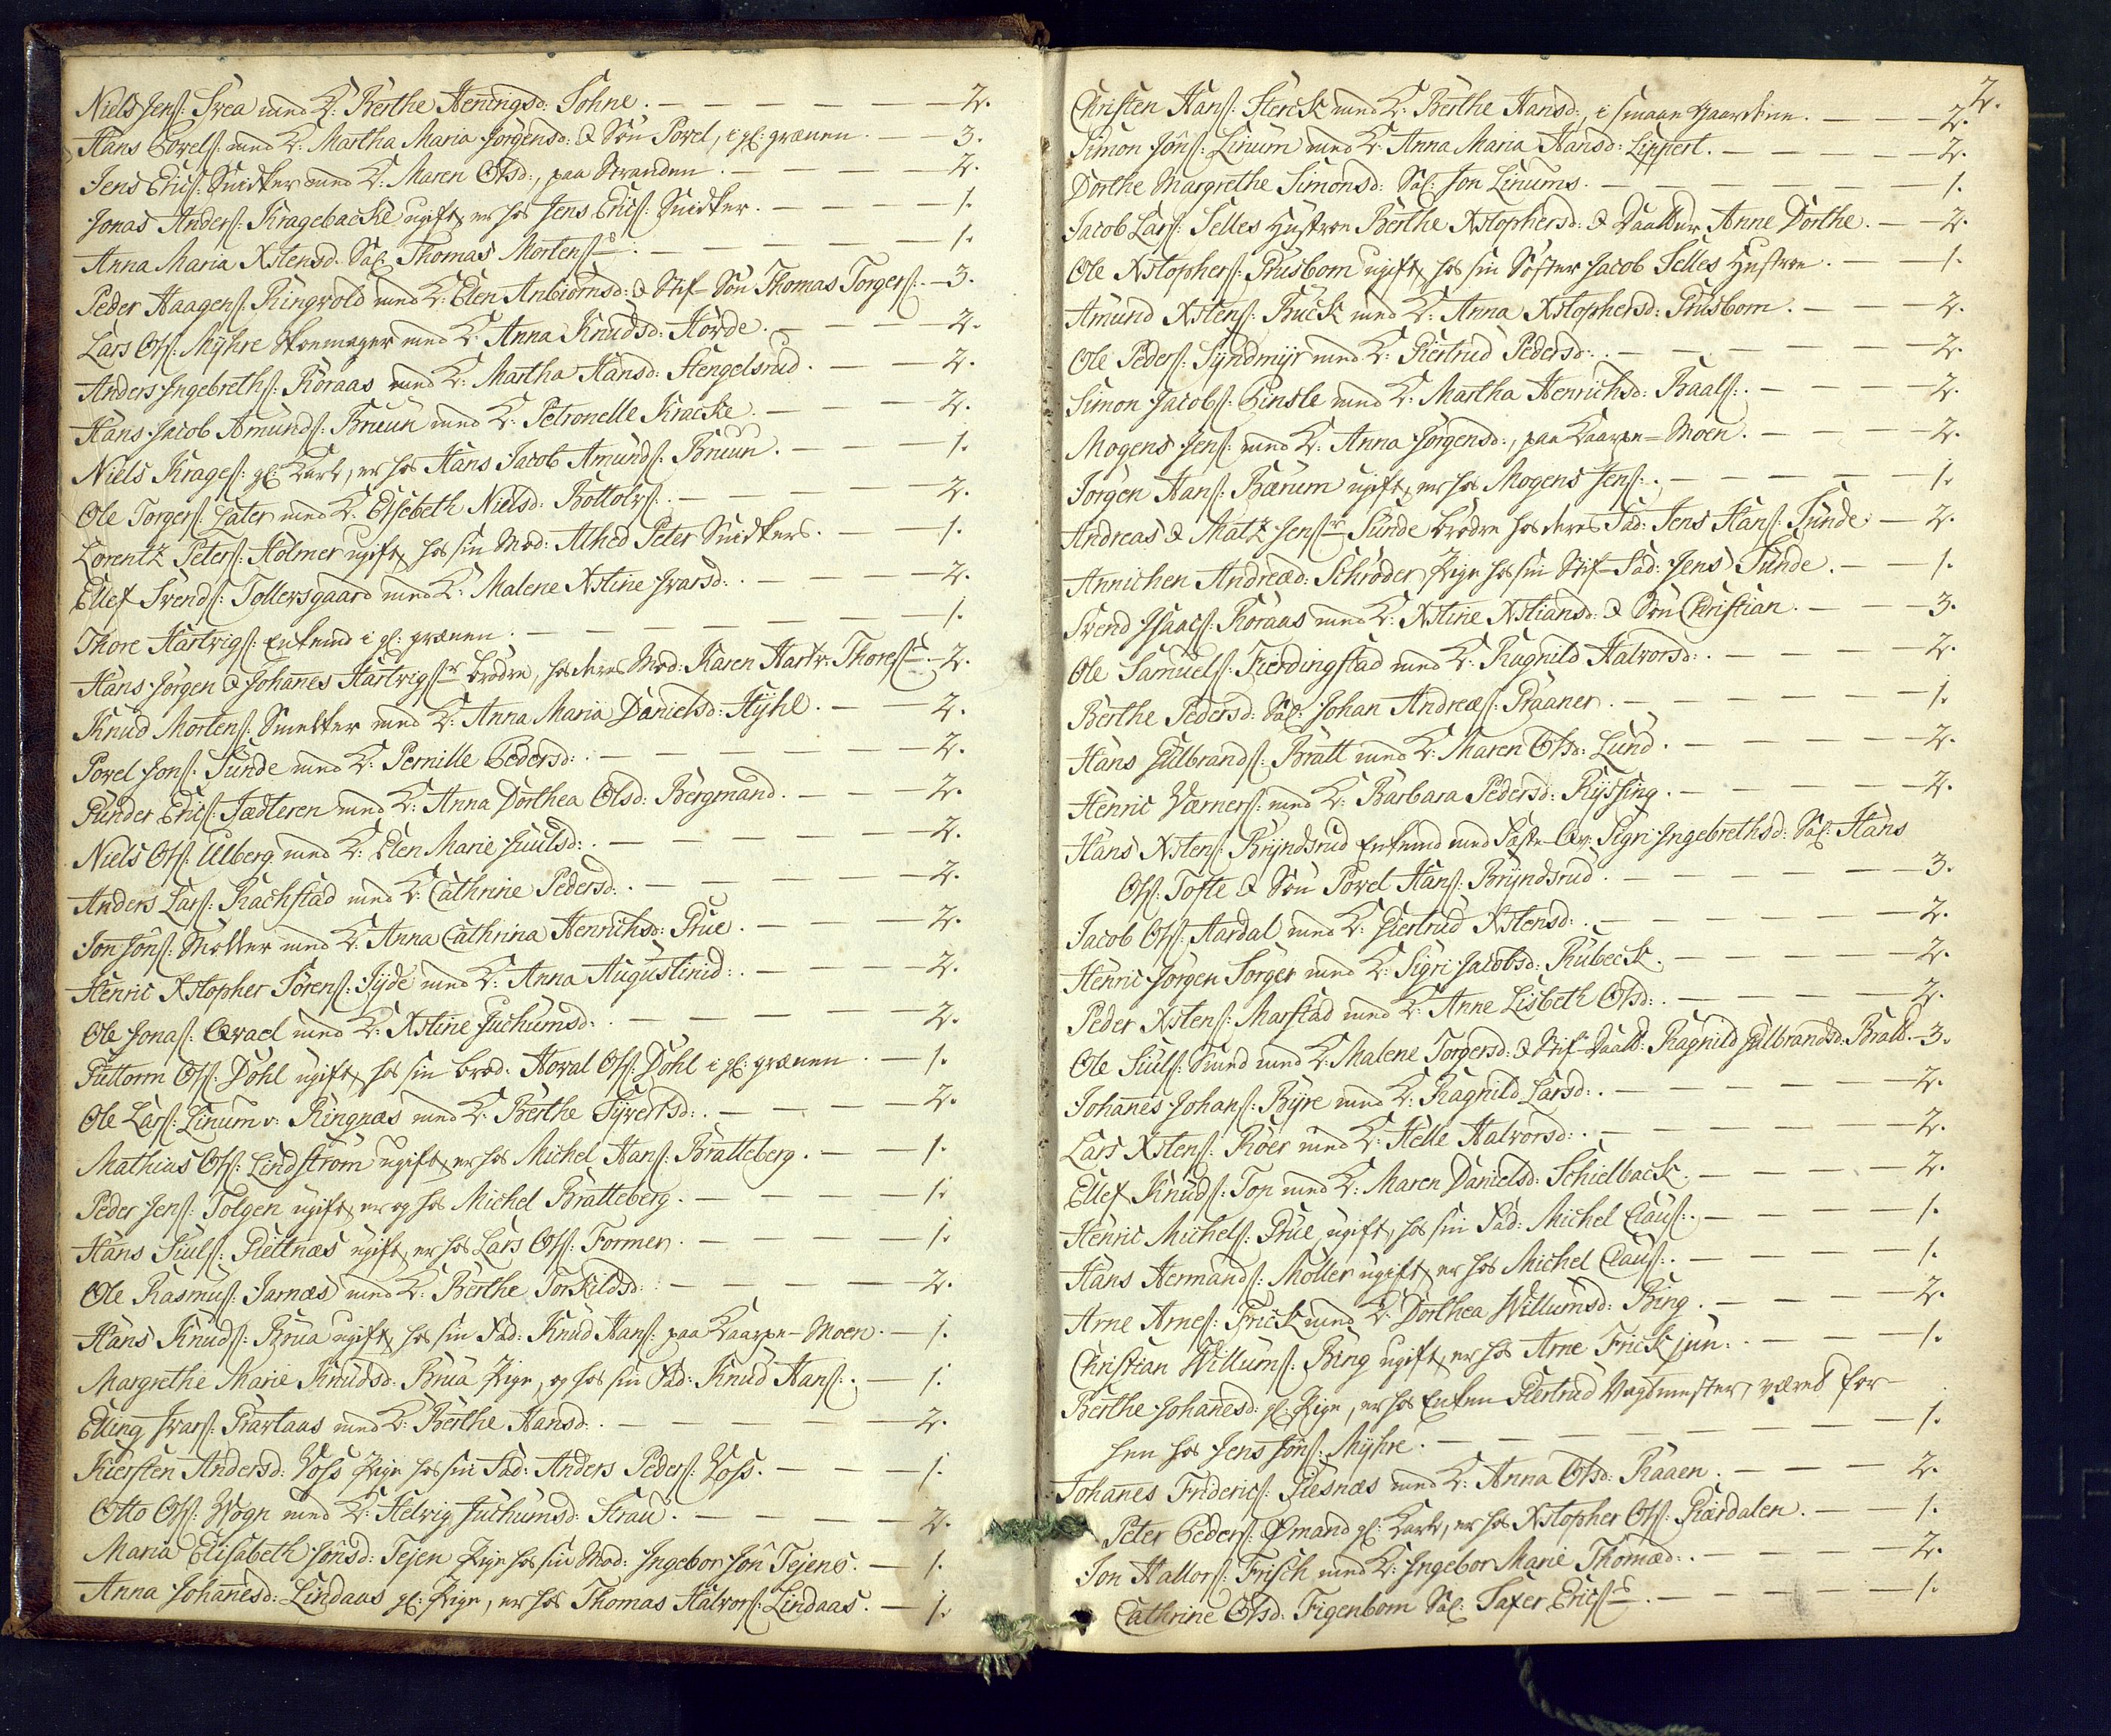 Niels Jens: Svea med K: Berthe Henningsd: Sohne. — 2.
Hans Povels: med K: Martha Maria Jörgensd: & Sön Povel, i gl: grænen. — 3.
Jens Erics: Snidker med K: Maren Olsd:, paa Stranden. — 2.
Jonas Anders: Kragebacke ugift, er hos Jens Erics: Snidker. — 1.
Anna Maria Xstensd: Sal: Thomas Mortens: — 1.
Peder Haagens: Ringvold med K: Elen Anbiörnsd: & Stif-Sön Thomas Torgers: — 3.
Lars Ols: Myhre Skoemager med K: Anna Knudsd: Hörde. — 2.
Anders Ingebreths: Röraas med K: Martha Hansd: Stengelsrud. — 2.
Hans Jacob Amunds: Bruun med K: Petronelle Kracke. — 2.
Niels Krages: gl: Karl, er hos Hans Jacob Amunds: Bruun. — 1.
Ole Torgers: Later med K: Elsebeth Nielsd: Bottolvs: — 2.
Lorentz Peters: Holmer ugift, hos sin Mod: Alhed Peter Snidkers. — 1.
Ellef Svends: Tollersgaard med K: Malene Xstine Ivarsd: — 2.
Thore Hartvigs: Enkemd i gl: grænen. — 1.
Hans Jörgen & Johanes Hartvigs: brödre, hos deres Mod: Karen Hartv: Thores: — 2.
Knud Mortens: Smelter med K: Anna Maria Danielsd: Hÿhl. — 2.
Povel Jons: Sunde med K: Pernille Pedersd: — 2.
Gunder Erics: Jædteren med K: Anna Dorthea Olsd: Bergmand. — 2.
Niels Ols: Ulberg med K: Elen Marie Juulsd: — 2.
Anders Lars: Rachstad med K: Cathrine Pedersd: — 2.
Jon Jöns: Möller med K: Anna Cathrina Henrichsd: Prue. — 2.
Henric Xstopher Sörens: Jyde med K: Anna Augustinid: — 2.
Ole Jonas: Qvael med K: Xstine Juchumsd: — 2.
Guttorm Ols: Dohl ugift, hos sin brod. Hoval Ols: Dohl i gl: grænen. — 1.
Ole Lars: Linum v: Ringnæs med K: Berthe Syvertsd: — 2.
Mathias Ols: Lindström ugift, er hos Michel Hans: Bratteberg. — 1.
Peder Jens: Tolgen ugift, er og hos Michel Bratteberg. — 1.
Hans Siuls: Plettnæs ugift, er hos Lars Ols: Former. — 1.
Ole Rasmus: Jarnæs med K: Berthe Torkildsd: — 2.
Hans Knuds: Brua ugift, hos sin Fad: Knud Hans: paa Kaarpe-Moen. — 1.
Margrethe Marie Knudsd: Brua Pige, og hos sin Fad: Knud Hans: — 1.
Elling Ivars: Pravtaas med K: Berthe Hansd: — 2.
Kiersten Andersd: Voss Pige hos sin Fad: Anders Peders: Voss. — 1.
Otto Ols: Wogn med K: Helvig Juchumsd: Strau. — 2.
Maria Elisabeth Jönsd: Tejen Pige hos sin Mod: Ingebor Jön Tejens. — 1.
Anna Johanesd: Lindaas gl: Pige, er hos Thomas Halvors: Lindaas. — 1.
2.
Christen Hans: Sterck med K: Berthe Hansd:, i smaae Gaardene. — 2.
Simon Jöns: Linum med K: Anna Maria Hansd: Lippert. — 2.
Dorthe Margrethe Simonsd: Sal: Jon Linums. — 1.
Jacob Lars: Selles Hustroe Berthe Xstophersd: & Daatter Anne Dorthe. — 2.
Ole Xstophers: Prusbom ugift, hos sin Söster Jacob Selles Hustroe. — 1.
Amund Xstens: Buck med K: Anna Xstophersd: Prusbom. — 2.
Ole Peders: Syndmyr med K: Giertrud Pedersd: — 2.
Simon Jacobs: Pinsle med K: Martha Henrichsd: Baals: — 2.
Mogens Jens: med K: Anna Jörgensd:, paa Kaarpe-Moen. — 2.
Jörgen Hans: Bærum ugift, er hos Mogens Jens: — 1.
Andreas & Matz Jens: Sunde brödre hos deres Fad: Jens Hans: Sunde. — 2.
Annichen Andreæd: Schröder Pige hos sin Stif-Fad: Jens Sunde. — 1.
Svend Isaacs: Röraas med K: Xstine Xstiansd: & Sön Christian. — 3.
Ole Samuels: Fierdingstad med K: Ragnild Halvorsd: — 2.
Berthe Pedersd: Sal: Johan Andreæs: Praaner. — 1.
Hans Gulbrands: Bratt med K: Maren Olsd: Lund. — 2.
Henric Værners: med K: Barbara Pedersd: Ryssing. — 2.
Hans Xstens: Bryndsrud Enkemd med Fæste-Qv: Sigri Ingebrethsd: Sal: Hans
Ols: Tofte & Sön Povel Hans: Bryndsrud. — 3.
Jacob Ols: Aardal med K: Giertrud Xstensd: — 2.
Henric Jörgen Sörger med K: Sigri Jacobsd: Rubeck. — 2.
Peder Xstens: Marstad med K: Anne Lisbeth Olsd: — 2.
Ole Siuls: Smed med K: Malene Torgersd: & Stif-Daatt: Ragnild Gulbrandsd: Bratt. — 3.
Johanes Johans: Byre med K: Ragnild Larsd: — 2.
Lars Xstens: Röer med K: Helle Halvorsd: — 2.
Ellef Knuds: Top med K: Maren Danielsd: Schielback. — 2.
Henric Michels: Prue, ugift, hos sin Fad: Michel Claus: — 1.
Hans Hermands: Möller ugift, er hos Michel Claus: — 1.
Arne Arnes: Frick med K: Dorthea Willumsd: Bing. — 2.
Christian Willums: Bing ugift, er hos Arne Frick jun: — 1.
Berthe Johanesd: gl: Pige, er hos Enken Giertrud Vagtmester, været for-
hen hos Jens Jöns: Myhre. — 1.
Johanes Friderics: Plesnæs med K: Anna Olsd: Raaen. — 2.
Peter Peders: Ömand gl: Karl, er hos Xstopher Ols: Kiærdalen. — 1.
Jon Hallors: Frisch med K: Ingebor Marie Thomæd: — 2.
Cathrine Olsd: Figenbom Sal: Saxer Erics: — 1.